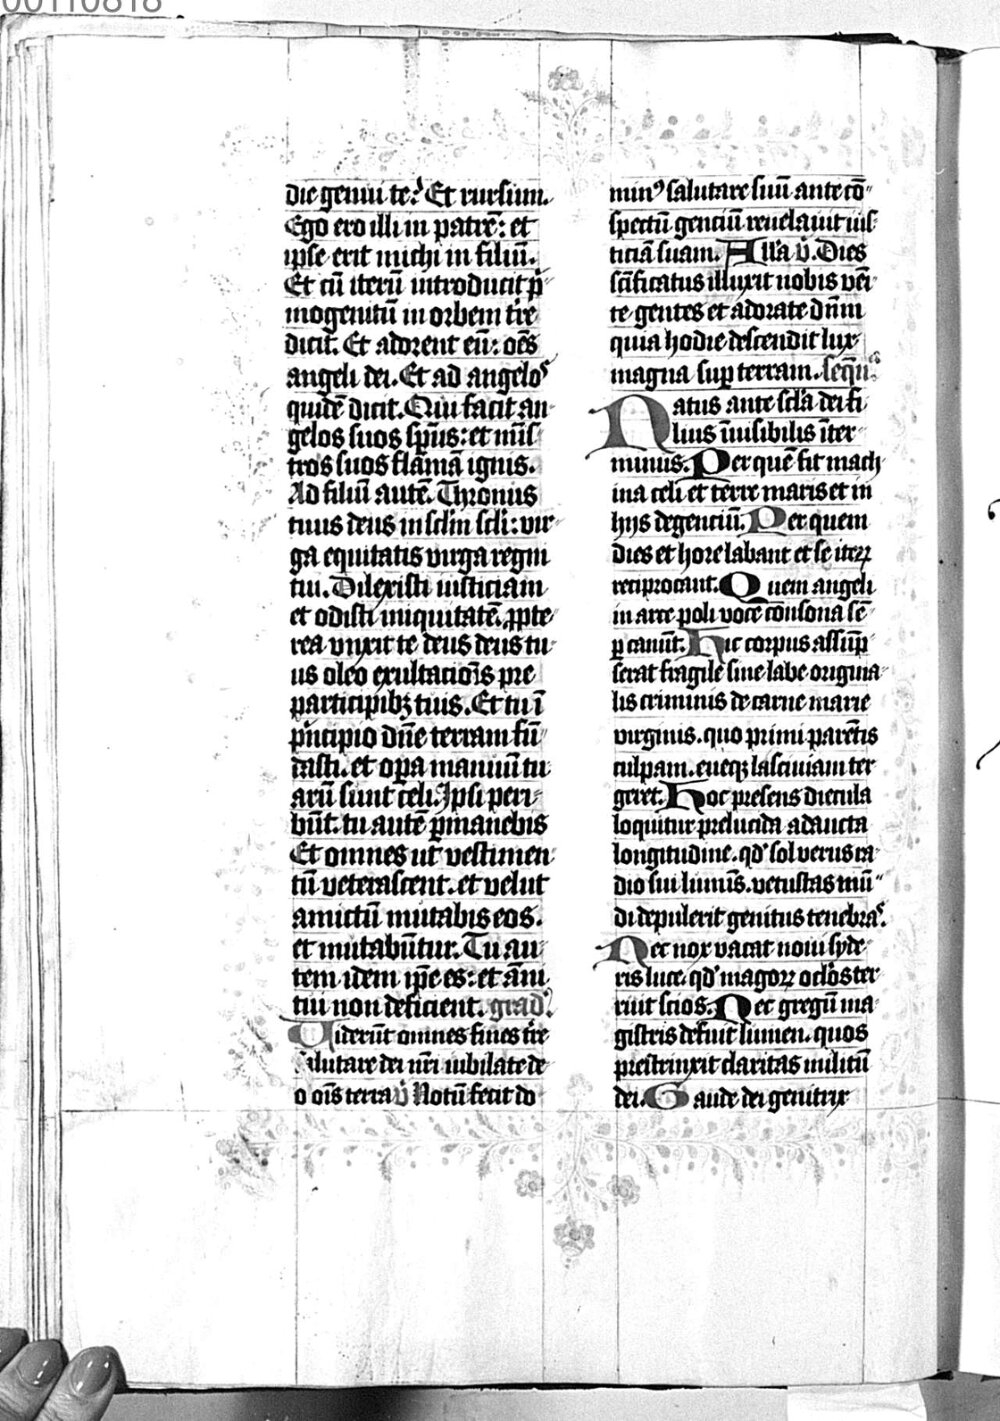 00110818
die genui te? Et rursum.
Ego ero illi in patrē: et
ipse erit michi in filiū.
Et cū iterū introducit p̄
mogenitū in orbem tr̄e
dicit. Et adorent eū: oēs
angeli dei. Et ad angelos
quidē dicit. Qui facit an
gelos suos sp̄us: et mīis
tros suos flāmā ignis.
Ad filiū autē. Thronus
tuus deus in sc̄lm sc̄li: vir
ga equitatis virga regni
tui. Dilexisti iusticiam
et odisti iniquitatē. ꝓpte
rea vnxit te deus deus tu
us oleo exultaciōis pre
participibꝫ tuis. Et tu ī
p̄ncipio dn̄e terram fū
dasti. et oꝑa manuū tu
arū sunt celi. Ipsi peri
būt. tu autē ꝑmanebis
Et omnes ut vestimen
tū veterascent. et velut
amictū mutabis eos.
et mutabūtur. Tu au
tem idem ip̄e es: et āni
tui non deficient. grad᷒
Uiderūt omnes fines tr̄e
salutare dei nr̄i iubilate de
o oīs terra v̄ Notū fecit do
minꝰ salutare suū ante cō
spectū genciū reuelauit ius
ticiā suam. All'a v̄. Dies
sc̄ificatus illuxit nobis veni
te gentes et adorate dn̄m
quia hodie descendit lux
magna suꝑ terram. seqū
Natus ante scl̄a dei fi
lius īuisibilis īter
minus. Per quē fit mach
ina celi et terre maris et in
hijs degenciū. Per quem
dies et hore labant et se iteꝝ
reciprocant. Quem angeli
in arce poli voce cōnsona sē
ꝑ canūt. Hic corpus assūp
serat fragile sine labe origina
lis criminis de carne marie
virginis. quo primi parētis
culpam. eueqꝫ lasciuiam ter
geret. Hoc presens diecula
loquitur prelucida adaucta
longitudine. qd' sol verus ra
dio sui lumīs. vetustas mū
di depulerit genitus tenebras.
Nec nox vacat noui syde
ris luce. qd' magoꝝ oc̄los ter
ruit scios. Nec gregū ma
gistris defuit lumen. quos
prestrinxit claritas militū
dei. Gaude dei genitrix